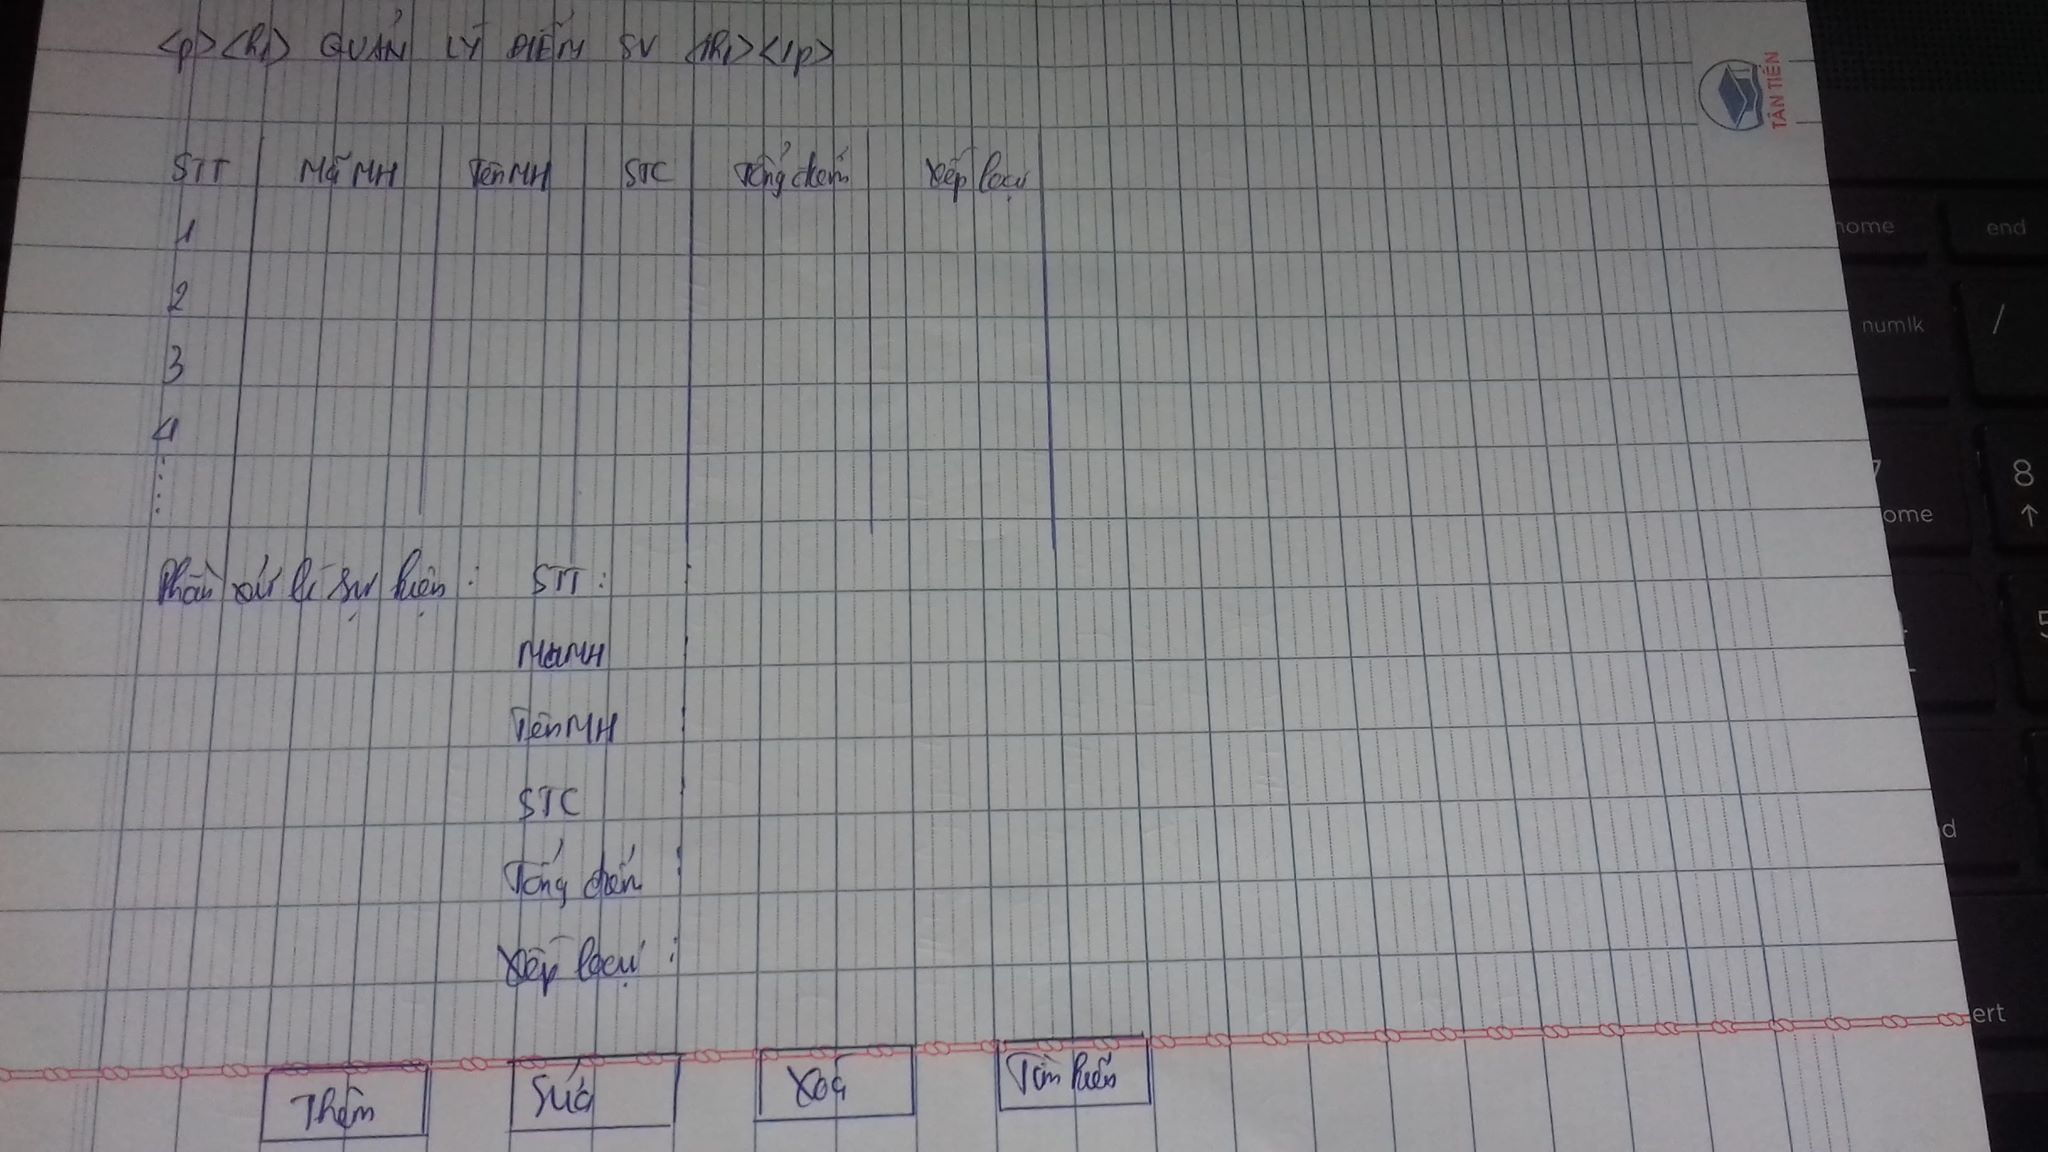 <p><h1> QUẢN LÝ ĐIỂM SV </h1></p>
TÂN TIẾN
STT Mã MH Tên MH STC Tổng điểm Xếp loại
1
2
3
4
Phần xử lí sự kiện : STT :
MaMH :
Tên MH :
STC :
Tổng điểm :
Xếp loại :
Thêm Sửa Xoá Tìm kiếm
home end
numlk /
7 8
home ↑
5
d
ert